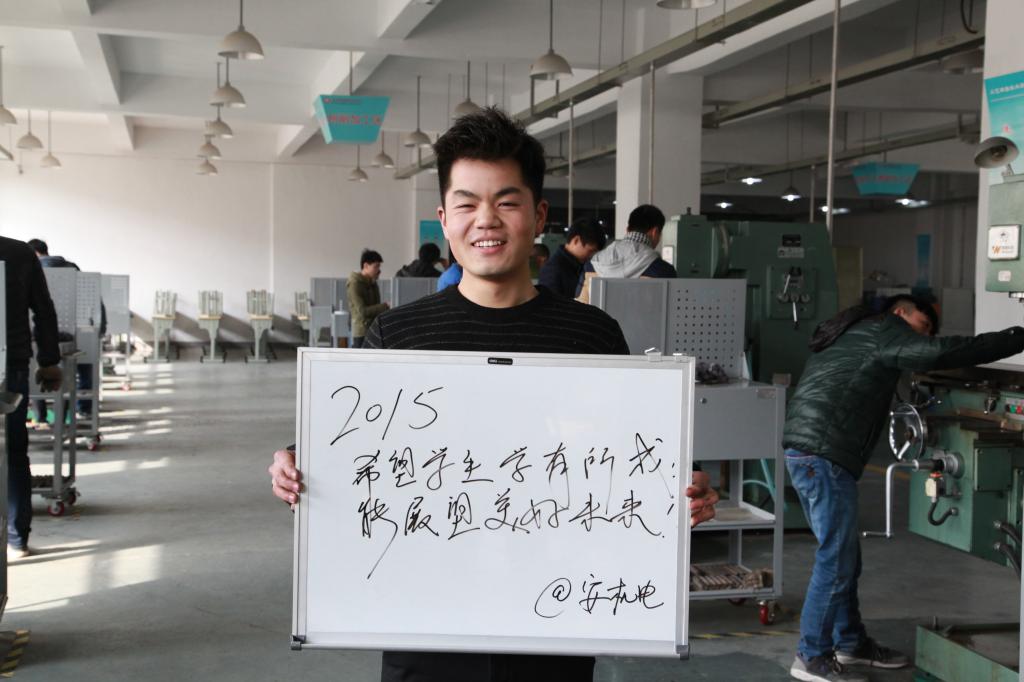 2015
希望学生学有所成；
能展望美好未来！
@安机电